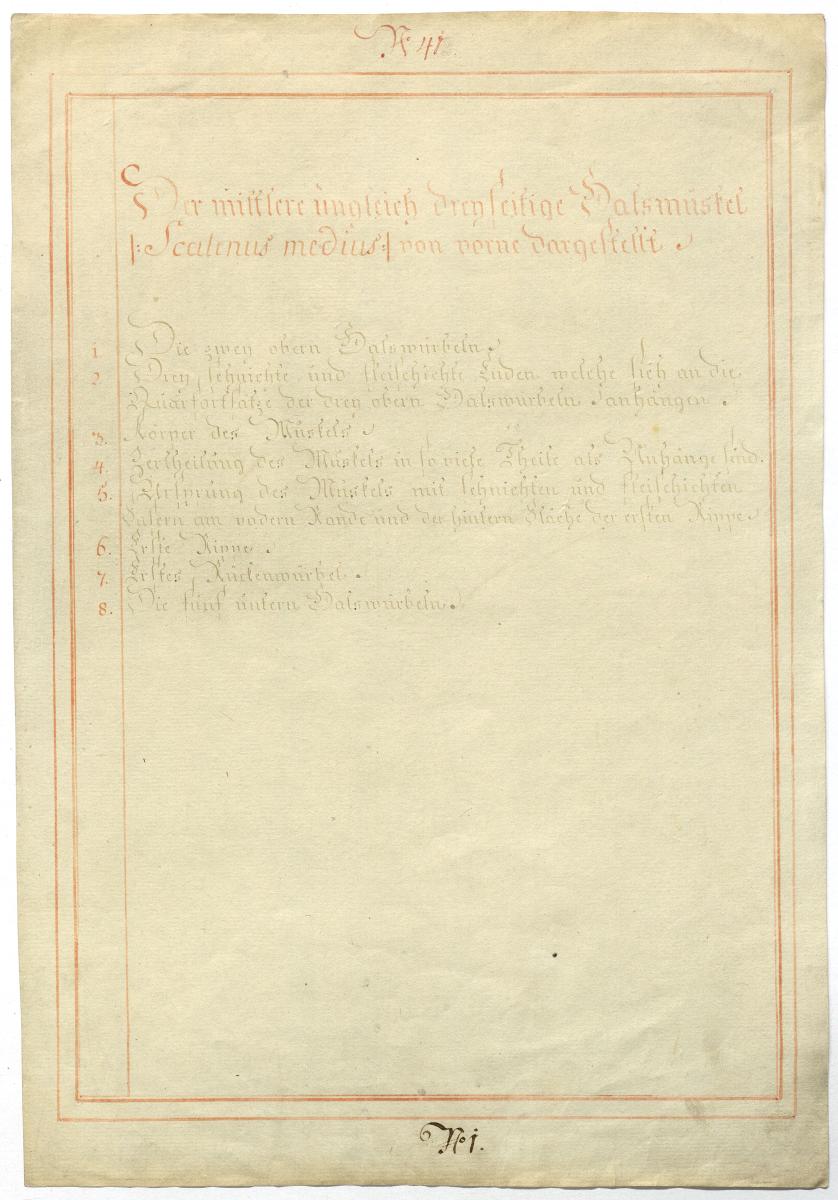 No 41.
Der mittlere ungleich dreyseitige Halsmuskel
|: Scalenus medius :| von vorne dargestellt.
1 Die zwey obern Halswürbeln.
2 Drey sehnichte und fleischichte Enden welche sich an die
Quärfortsätze der drey obern Halswürbeln anhängen.
3. Körper des Muskels.
4. Zertheilung des Muskels in so viele Theile als Anhänge sind.
5. Ursprung des Muskels mit sehnichten und fleischichten
Fasern am vodern Rande und der hintern Fläche der ersten Rippe.
6. Erste Rippe.
7. Erstes Rückenwürbel.
8. Die fünf untern Halswürbeln.
No 1.